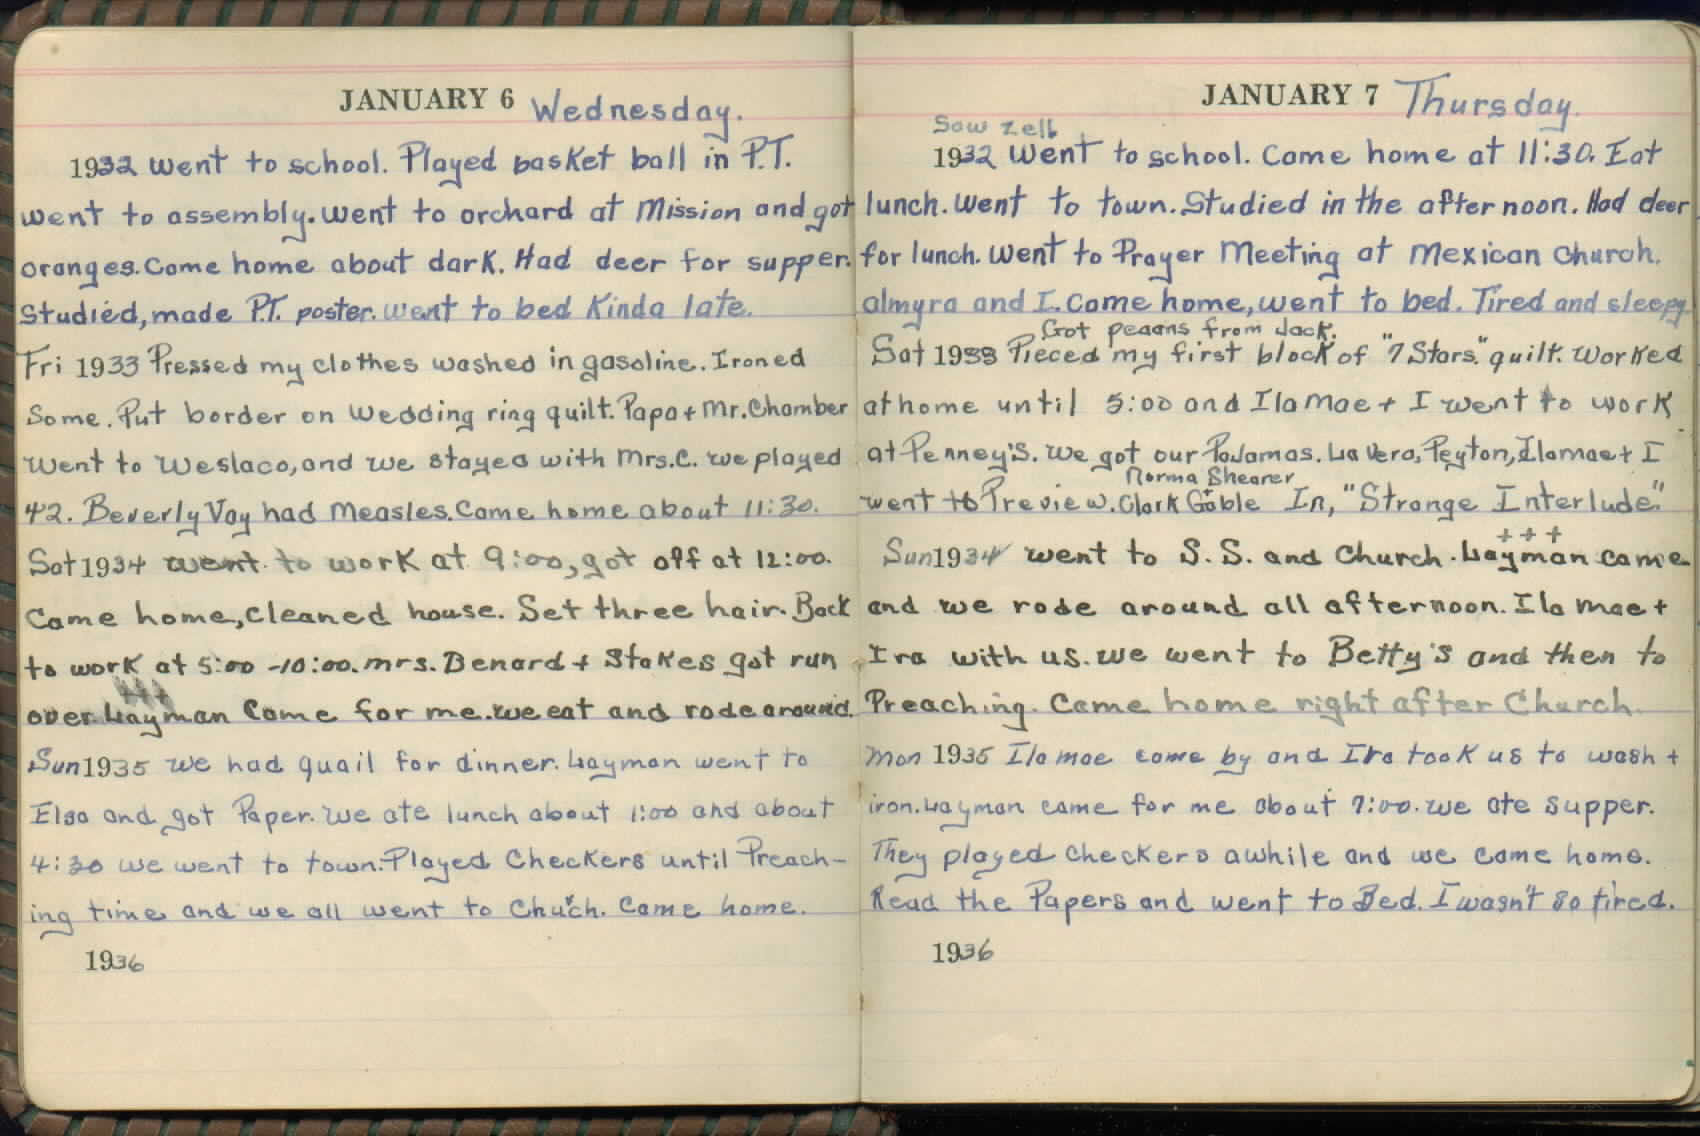 JANUARY 6 Wednesday.
1932 Went to school. Played basket ball in P.T.
went to assembly. Went to orchard at Mission and got
oranges. Come home about dark. Had deer for supper.
Studied, made P.T. poster. went to bed Kinda late.
Fri 1933 Pressed my clothes washed in gasoline. Ironed
Some. Put border on Wedding ring quilt. Papa + Mr. Chamber
Went to Weslaco, and we stayed with Mrs. C. we played
42. Beverly Vay had Measles. Come home about 11:30.
Sat 1934 went to work at 9:00, got off at 12:00.
Come home, cleaned house. Set three hair. Back
to work at 5:00 - 10:00. Mrs. Benard + Stokes got run
+++
over. Layman Come for me. we eat and rode around.
Sun 1935 We had quail for dinner. Layman went to
Elsa and got Paper. We ate lunch about 1:00 and about
4:30 we went to town. Played Checkers until Preach-
ing time and we all went to Chuch. r Came home.
1936
JANUARY 7 Thursday.
Saw Zell
1932 Went to school. Come home at 11:30. Eat
lunch. Went to town. Studied in the afternoon. Had deer
for lunch. Went to Prayer Meeting at Mexican Church.
Almyra and I. Come home, went to bed. Tired and sleepy
Got pecans from Jack.
Sat 1933 Pieced my first block of "7 Stars." quilt. Worked
at home until 5:00 and Ila Mae + I went to work
at Penney's. We got our Pajamas. La Vera, Peyton, Ilamae + I
Norma Shearer
went to Preview. Clark Gable + In, "Strange Interlude."
+++
Sun 1934 went to S. S. and Church. Layman came
and we rode around all afternoon. Ila Mae +
Ira with us. We went to Betty's and then to
Preaching. Came home right after Church.
Mon 1935 Ila mae come by and Ira took us to wash +
iron. Layman came for me about 7:00. we ate supper.
They played checkers awhile and we come home.
Read the Papers and went to Bed. I wasn't so tired.
1936